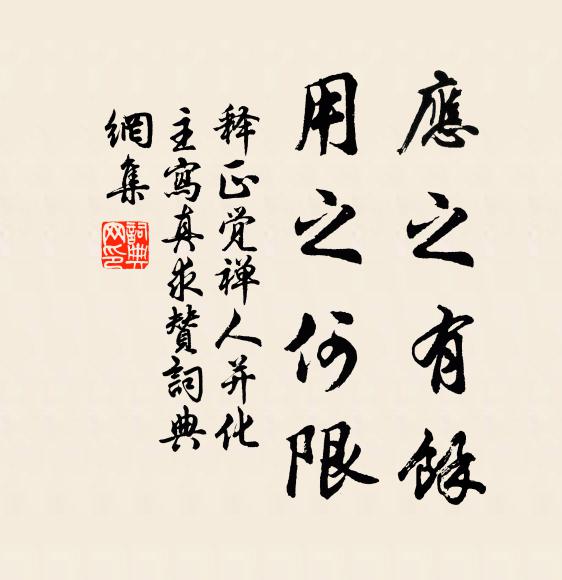 應之有餘
用之何限
释正觉禅人并化
主寫真求贊詞典
網集
詞典
网印